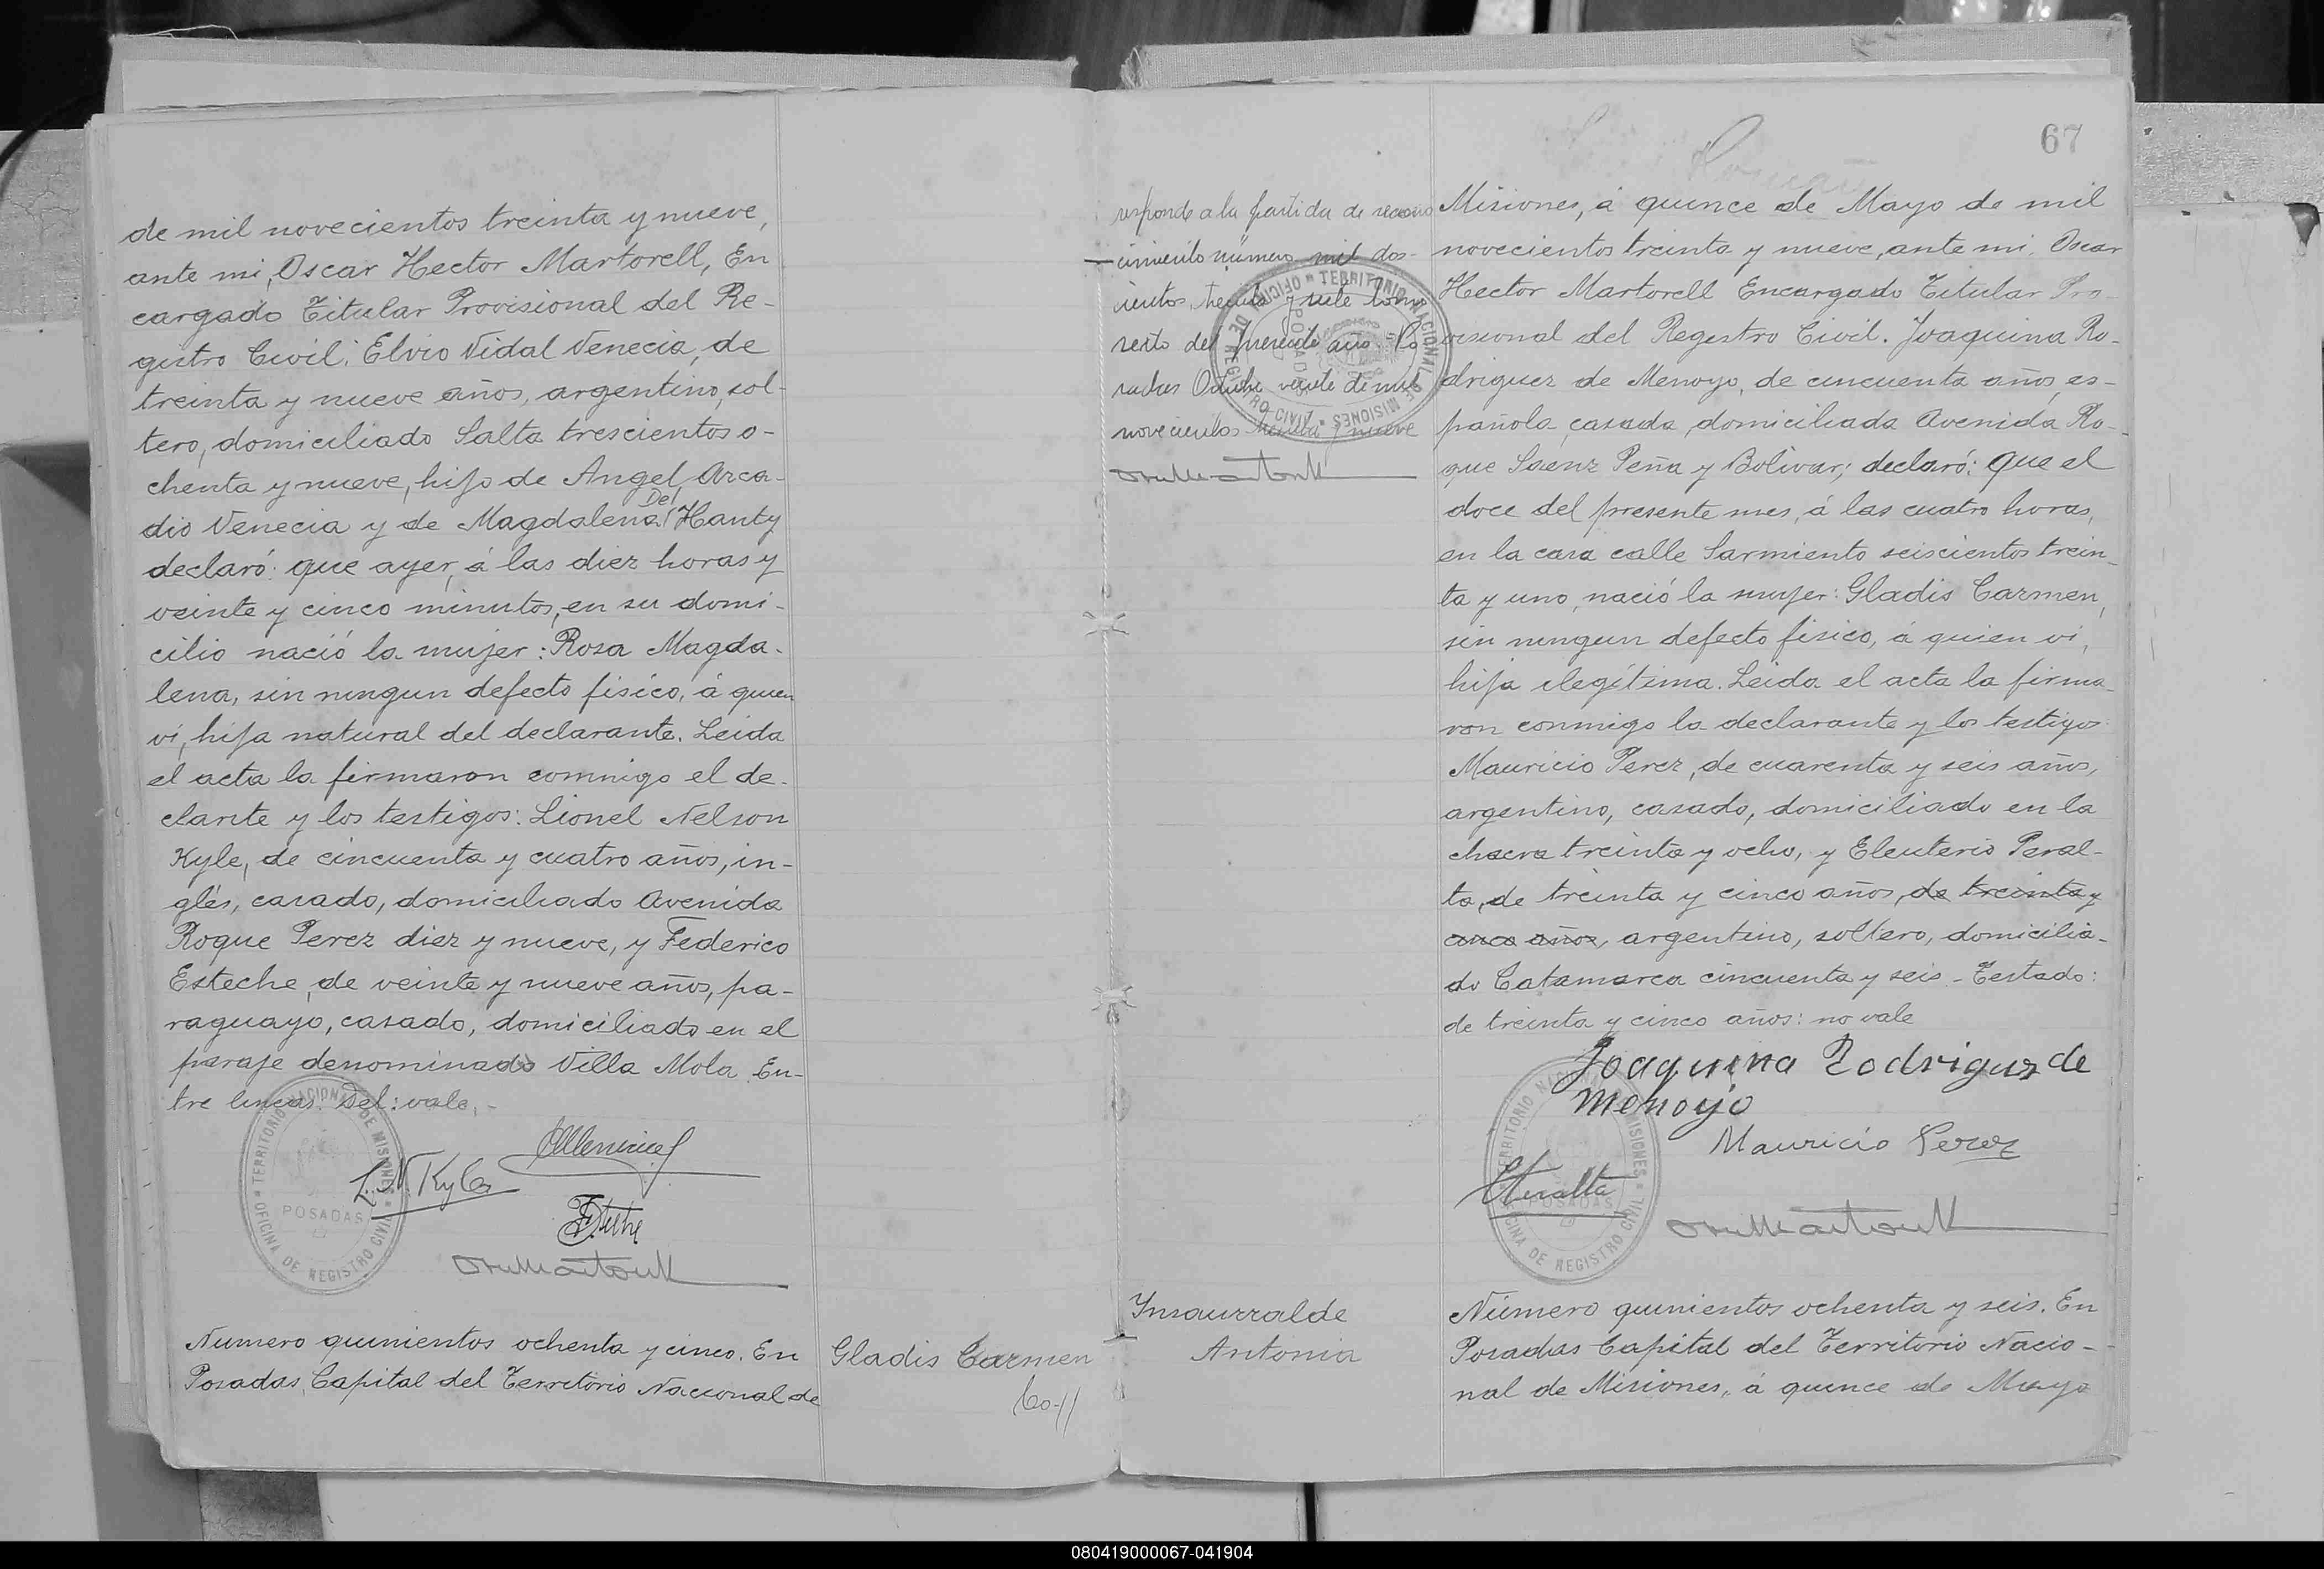 de mil novecientos treinta y nueve,
ante mi, Oscar Hector Martorell, En
cargado Titular Provisional del Re-
gistro Civil: Elvio Vidal Venecia, de
treinta y nueve años, argentino, sol-
tero, domiciliado Salta trescientos o-
chenta y nueve, hijo de Angel Arca-
dio Venecia y de Magdalena Del Hanty
declaró: que ayer, á las diez horas y
veinte y cinco minutos, en su domi-
cilio nació la mujer: Rosa Magda-
lena, sin ningun defecto fisico, á quien
vi, hija natural del declarante. Leida
el acta la firmaron conmigo el de-
clante y los testigos: Lionel Nelson
Kyle, de cincuenta y cuatro años, in-
glés, casado, domiciliado Avenida
Roque Perez diez y nueve, y Federico
Esteche, de veinte y nueve años, pa-
raguayo, casado, domiciliado en el
paraje denominado Villa Mola. En-
tre lineas: Del: vale, -
L. N. Kyle
TERRITORIO NACIONAL DE MISIONES
POSADAS
OFICINA DE REGISTRO CIVIL
Numero quinientos ochenta y cinco. En
Posadas, Capital del Territorio Nacional de
Gladis Carmen
67
responde a la partida de recono
cimiento número mil dos-
cientos treinta y siete tomo
sexto del presente año. Po
sadas Octubre veinte de mil
novecientos treinta y nueve
TERRITORIO NACIONAL DE MISIONES
POSADAS
OFICINA DE REGISTRO CIVIL
Misiones, á quince de Mayo de mil
novecientos treinta y nueve, ante mi, Oscar
Hector Martorell Encargado Titular Pro
visional del Registro Civil. Joaquina Ro-
driguez de Menoyo, de cincuenta años, es-
pañola, casada, domiciliada Avenida Ro-
que Saenz Peña y Bolivar; declaró: que el
doce del presente mes, á las cuatro horas,
en la casa calle Sarmiento seiscientos trein
ta y uno, nació la mujer: Gladis Carmen,
sin ningun defecto fisico, á quien vi,
hija ilegítima. Leida el acta la firma
ron conmigo la declarante y los testigos
Mauricio Perez, de cuarenta y seis años,
argentino, casado, domiciliado en la
chacra treinta y ocho, y Eleuterio Peral-
ta, de treinta y cinco años, de treinta y
cinco años, argentino, soltero, domicilia-
do Catamarca cincuenta y seis - Testado:
de treinta y cinco años: no vale
Joaquina Rodriguez de
Menoyo
Mauricio Perez
EPeralta
TERRITORIO NACIONAL DE MISIONES
POSADAS
OFICINA DE REGISTRO CIVIL
Insaurralde
Antonia
Número quinientos ochenta y seis. En
Posadas Capital del Territorio Nacio-
nal de Misiones, á quince de Mayo
080419000067-041904